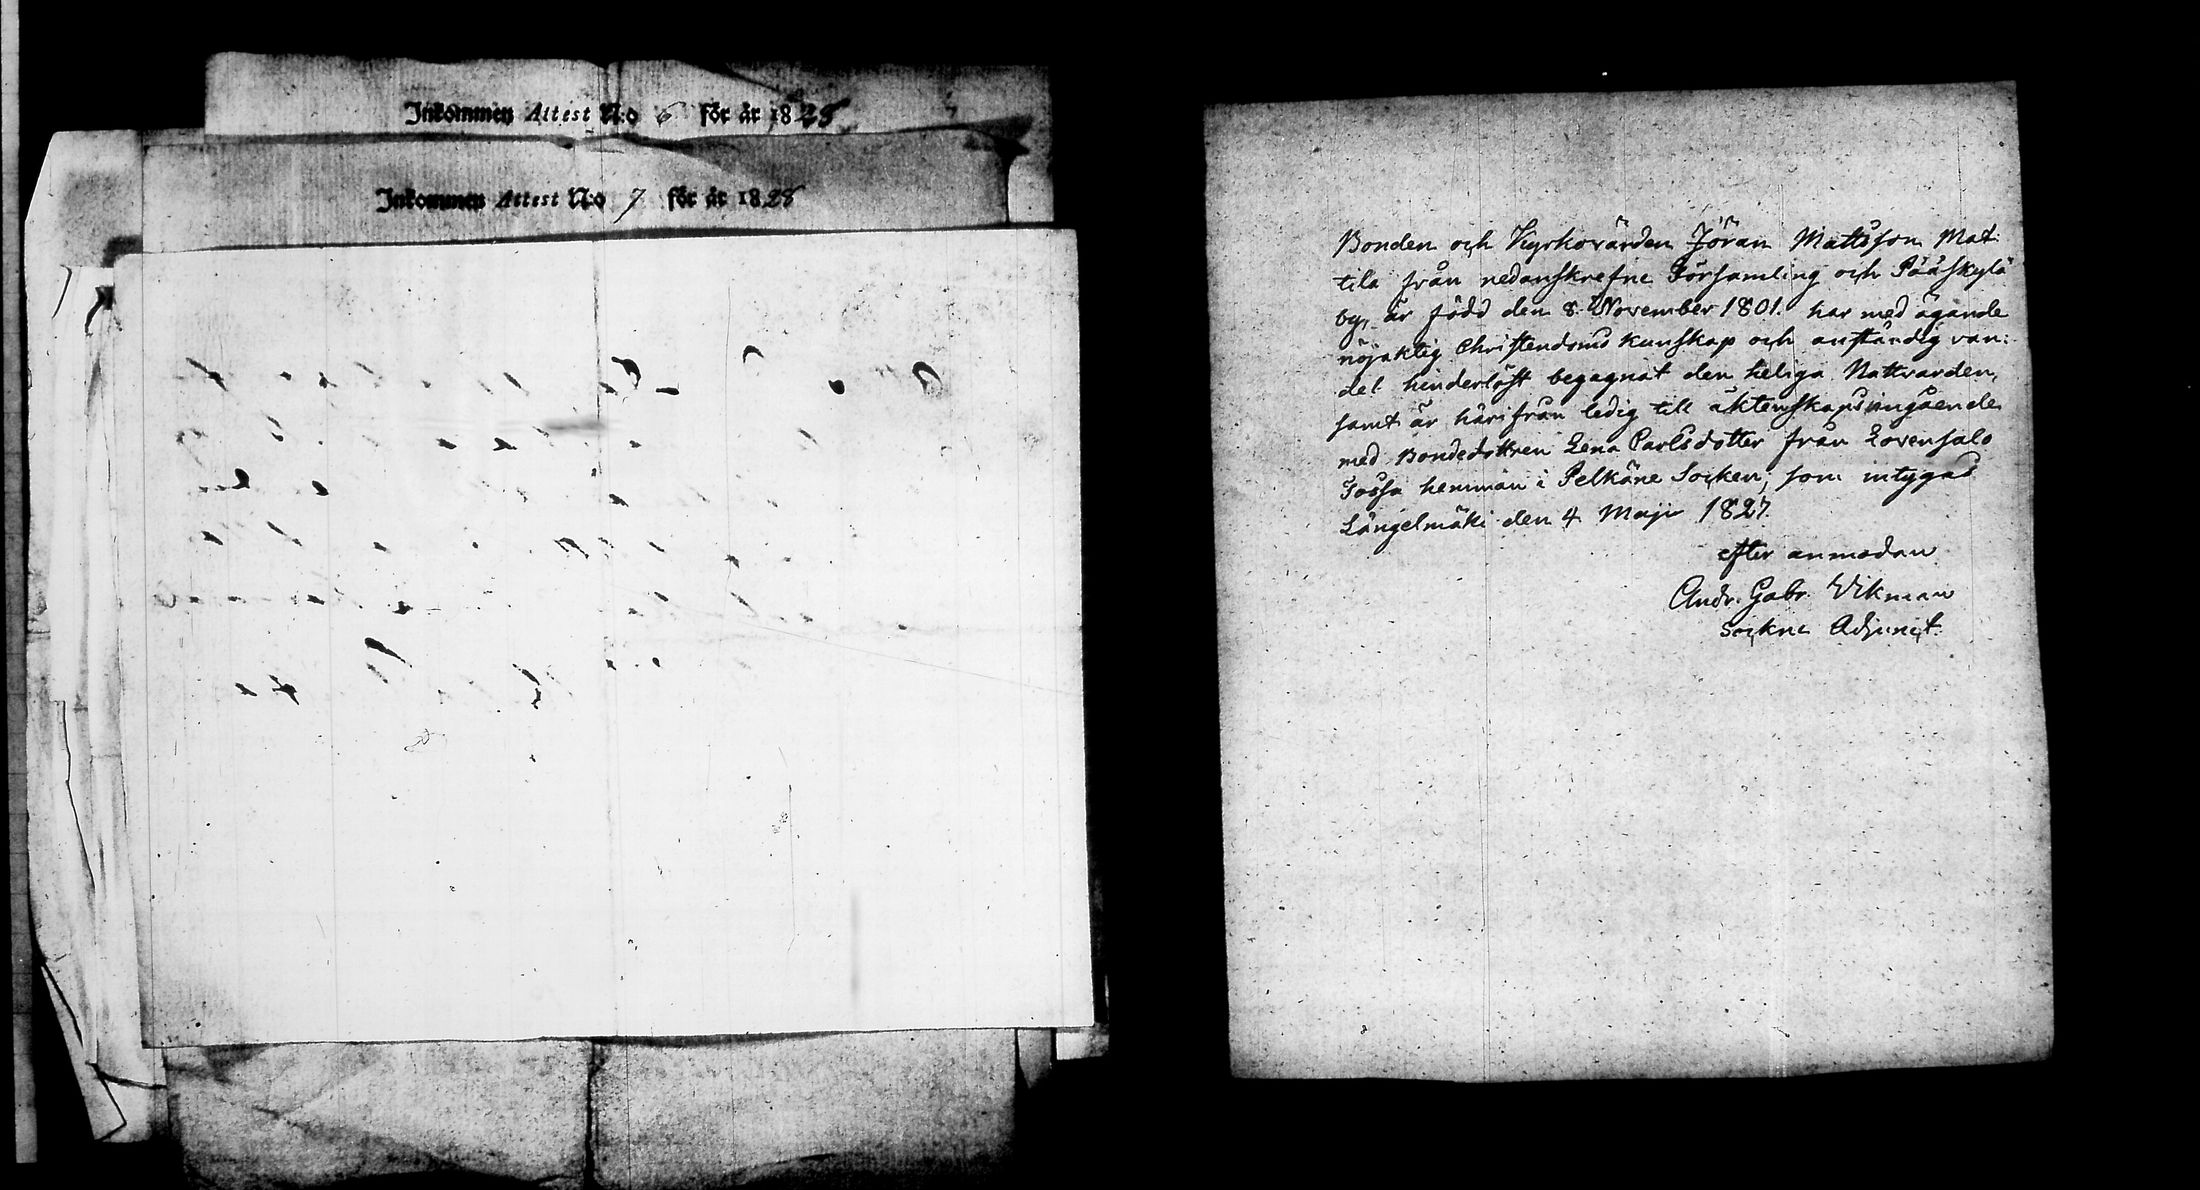 Inkommen Attest N:o 6 för år 1828
Inkommen Attest N:o 7 för år 1828
Bonden och Kyrkovärden Jöran Mattsson Mat
tila från nedanskrefne Församling och Pääskylä
by, är född den 8. November 1801. har med ägande
nöjaktig Christendoms kunskap och anständig van:
del hinderlöst begagnat den heliga Nattvarden,
samt är härifrån ledig till äktenskaps ingående
med Bondedottren Lena Carlsdotter från Lovensalo
hemman i Pelkäne Socken; som intygas
Längelmäki den 4 Maji 1827
efter anmodan
Andr. Gabr. Wikman
Sockne Adjunct.